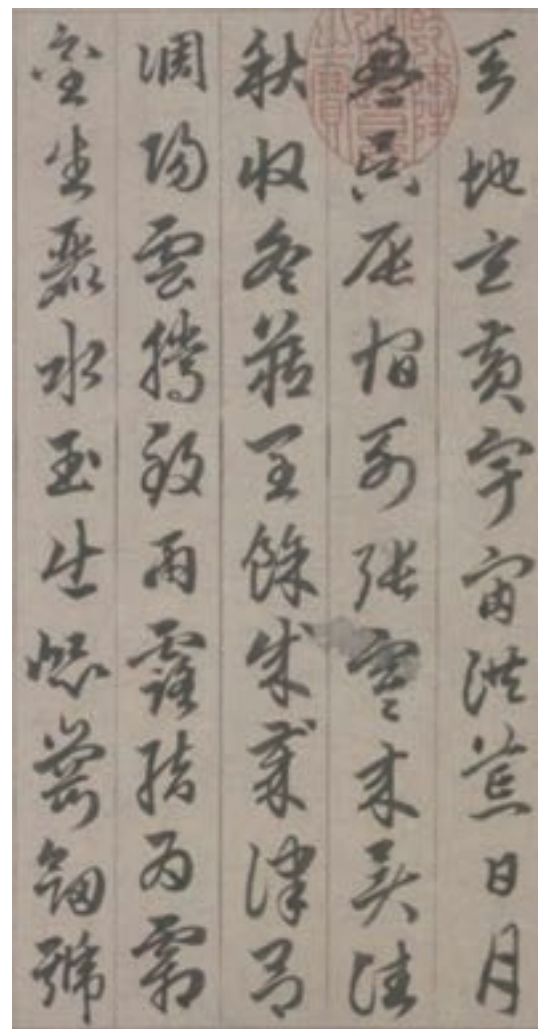 天地玄黃宇宙洪荒日月
盈昃辰宿列張寒来暑往
秋收冬藏閏餘成歲律呂
調陽雲騰致雨露結為霜
金生麗水玉出崑崗劒號